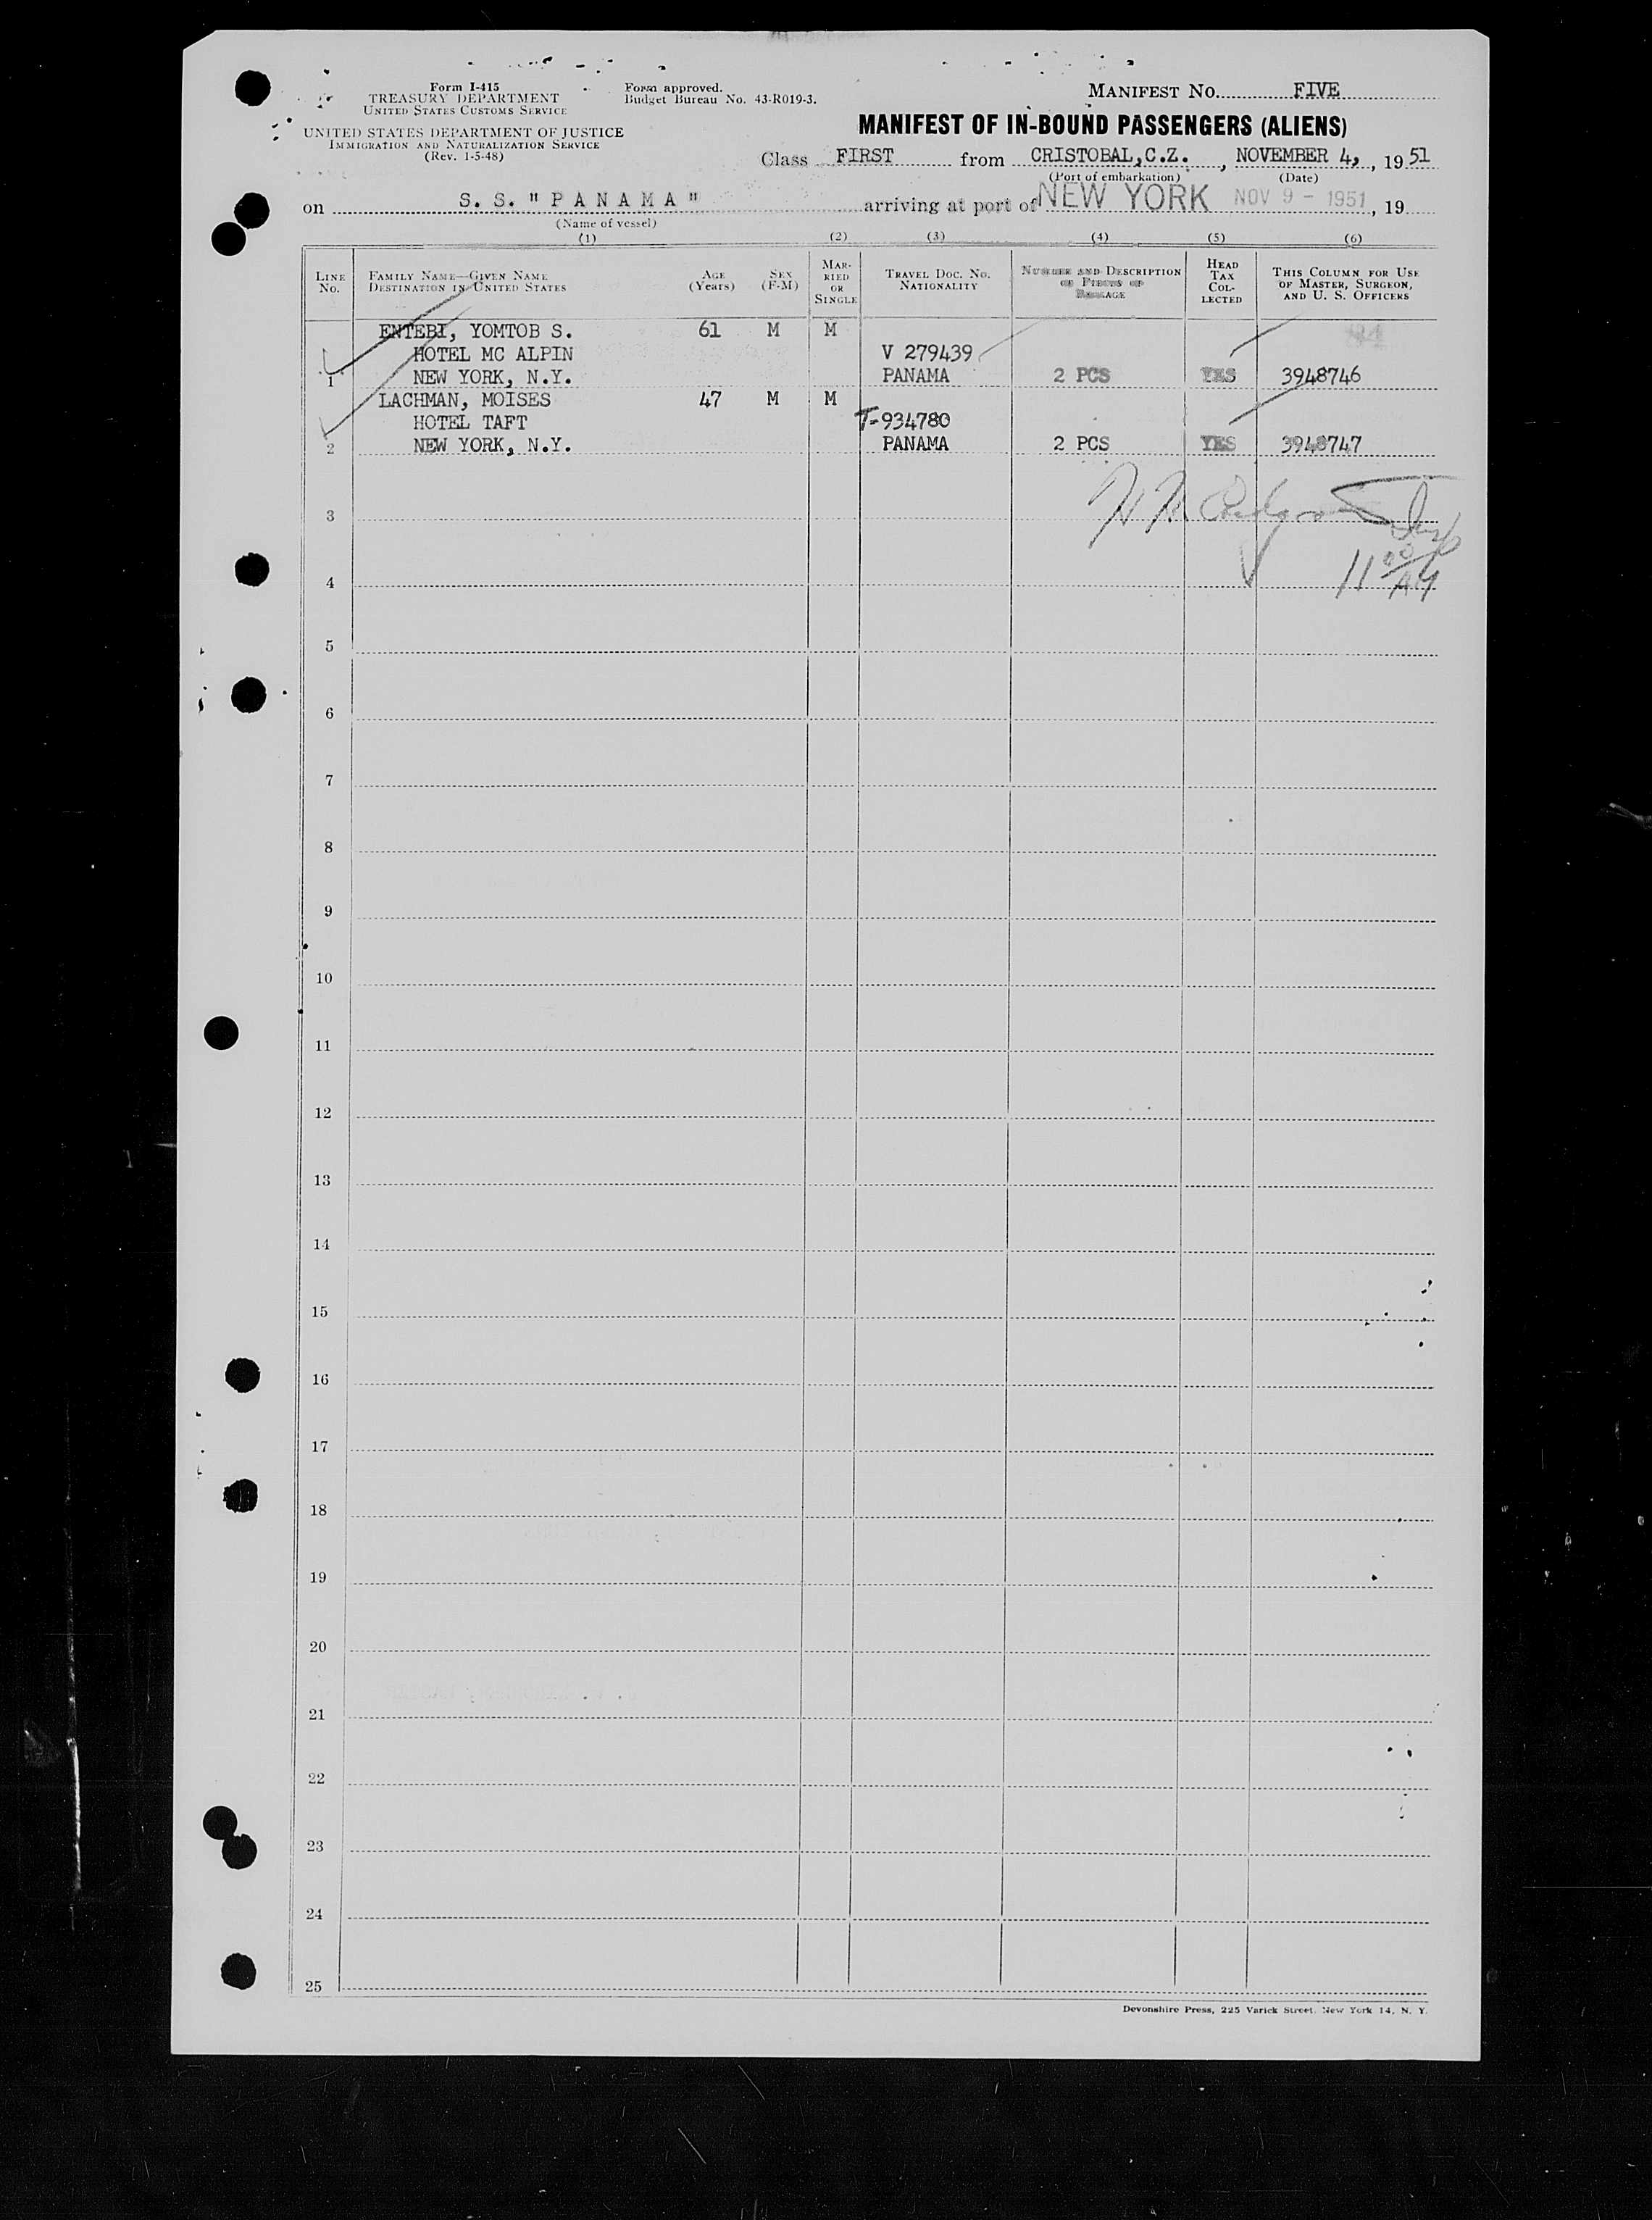 Form I-415
TREASURY DEPARTMENT
UNITED STATES CUSTOMS SERVICE
UNITED STATES DEPARTMENT OF JUSTICE
IMMIGRATION AND NATURALIZATION SERVICE
(Rev. 1-5-48)
Form approved.
Budget Bureau No. 43-R019-3.
MANIFEST No. FIVE
MANIFEST OF IN-BOUND PASSENGERS (ALIENS)
Class FIRST from CRISTOBAL, C.Z. , NOVEMBER 4, , 19 51
(Port of embarkation) (Date)
on S. S. " P A N A M A " arriving at port of NEW YORK NOV 9 - 1951 , 19
(Name of vessel)
(1) (2) (3) (4) (5) (6)
LINE No. FAMILY NAME—GIVEN NAME DESTINATION IN UNITED STATES AGE (Years) SEX (F-M) MARRIED OR SINGLE TRAVEL DOC. No. NATIONALITY NUMBER AND DESCRIPTION OF PIECES OF BAGGAGE HEAD TAX COLLECTED THIS COLUMN FOR USE OF MASTER, SURGEON, AND U. S. OFFICERS
ENTEBI, YOMTOB S. 61 M M
HOTEL MC ALPIN V 279439
1 NEW YORK, N.Y. PANAMA 2 PCS YES 3948746
LACHMAN, MOISES 47 M M
HOTEL TAFT T-934780
2 NEW YORK, N.Y. PANAMA 2 PCS YES 3948747
3
4 11 00 AM
5
6
7
8
9
10
11
12
13
14
15
16
17
18
19
20
21
22
23
24
25
Devonshire Press, 225 Varick Street, New York 14, N. Y.